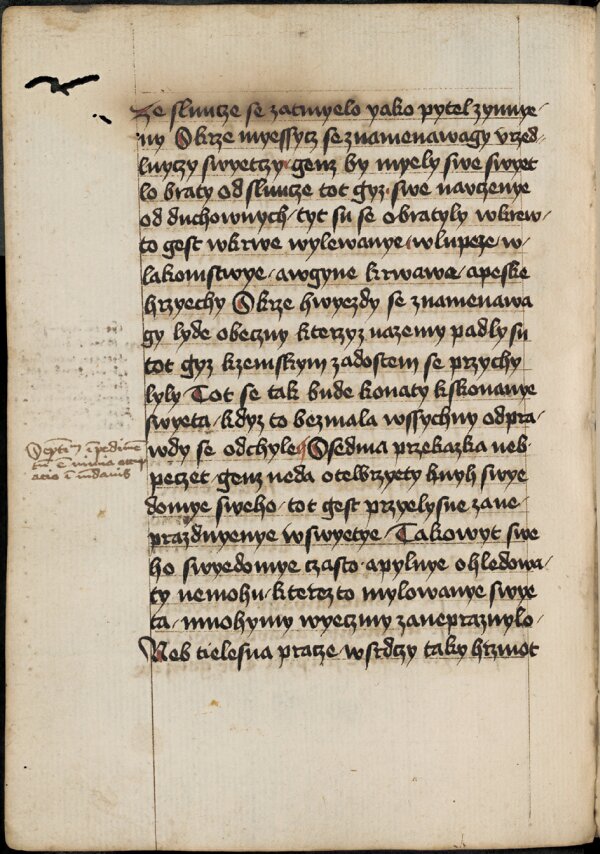 Ze sluncze se zatmyelo yako pytel zynnye-
ny Skrze myessycz se znamenawagy vrzed-
lnyczy swyetczy genz by myely swe swyet
lo braty od sluncze tot gyz swe navczenye
od duchownych tyt su se obratyly wkrew
to gest wkrwe wylewanye wlupeze w-
lakomstwye awgyne krwawe apeske
hrzyechy Skrze hwyezdy se znamenawa
gy lyde obeczny kterzyz nazemy padly su
tot gyz kzemskym zadostem se przychy
lyly Tot se tak bude konaty kskonanye
swyeta kdyz to bezmala wssychny odpra-
wdy se odchyle Osedma przekazka neb
peczet genz neda otewrzyety knyh swye
domye sweho tot gest przyelysne zane-
prazdnyenye wswyetye Takowyt swe
ho swyedomye czasto apylnye ohledowa-
ty nemohu kterezto mylowanye swye
ta mnohymy wyeczmy zanepraznylo
Neb tielesna pracze wsrdczy taky hrzmot